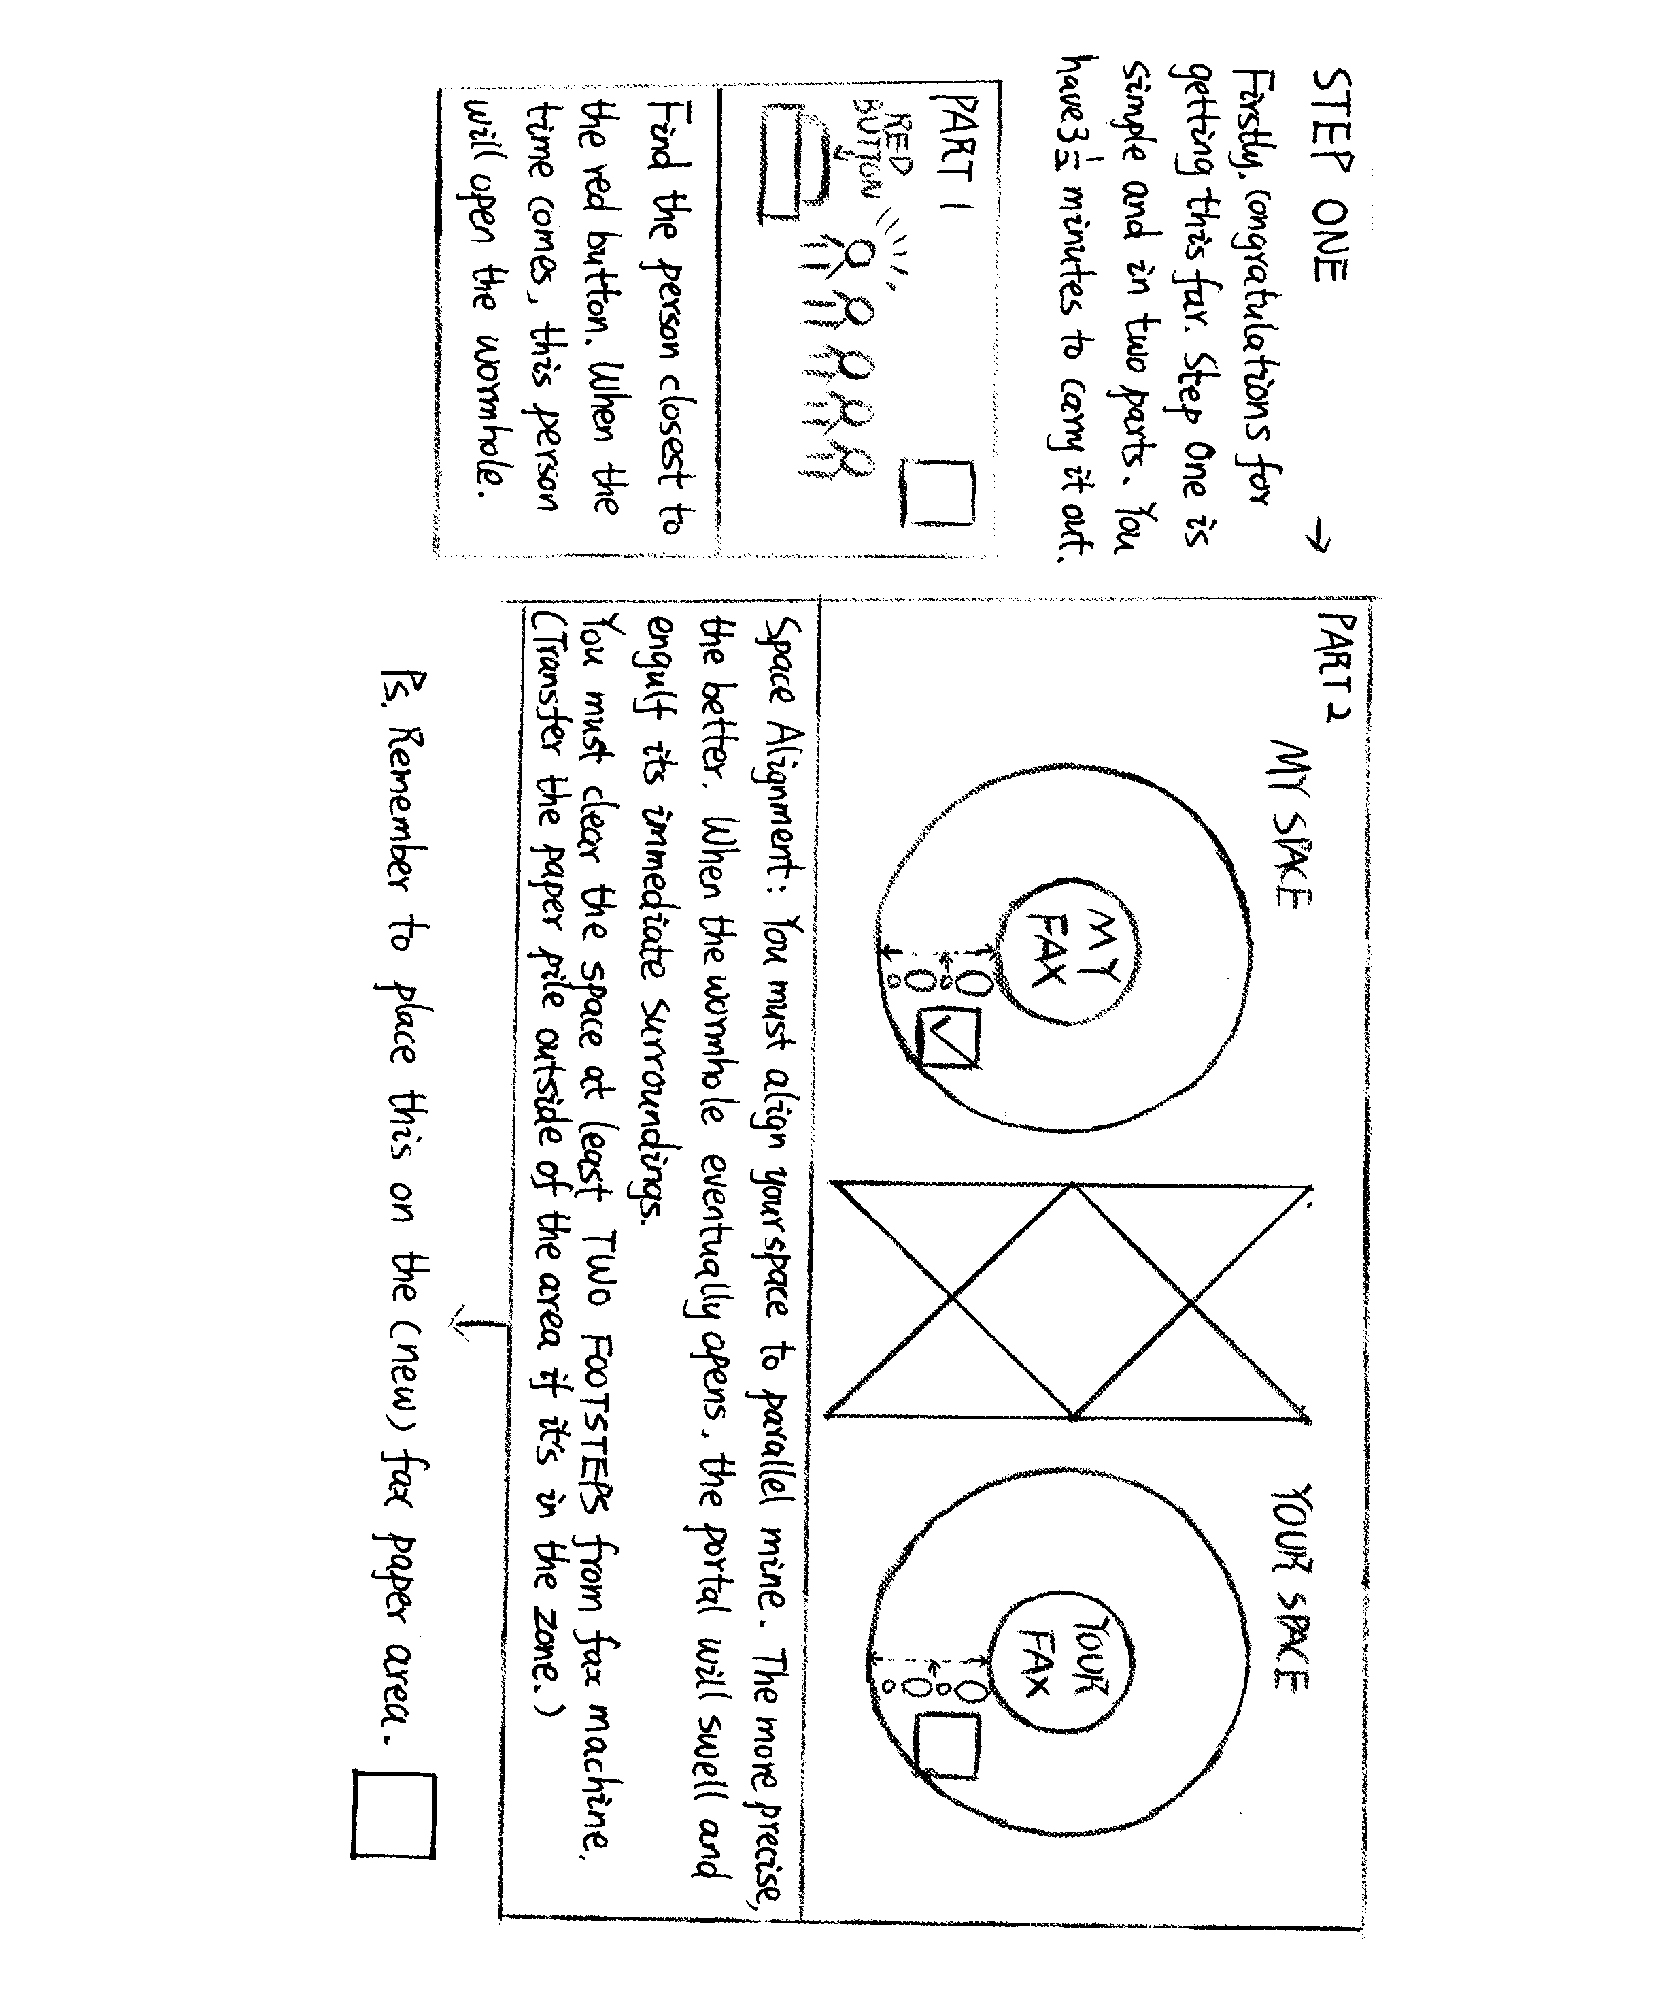 STEP ONE →
Firstly, congratulations for
getting this far. Step One is
simple and in two parts. You
have 3½ minutes to carry it out.
PART 1
RED
BUTTON
Find the person closest to
the red button. When the
time comes, this person
will open the wormhole.
PART 2
MY SPACE
MY
FAX
YOUR SPACE
YOUR
FAX
Space Alignment: You must align your space to parallel mine. The more precise,
the better. When the wormhole eventually opens, the portal will swell and
engulf its immediate surroundings.
You must clear the space at least TWO FOOTSTEPS from fax machine.
(Transfer the paper pile outside of the area if it's in the zone.)
Ps. Remember to place this on the (new) fax paper area.